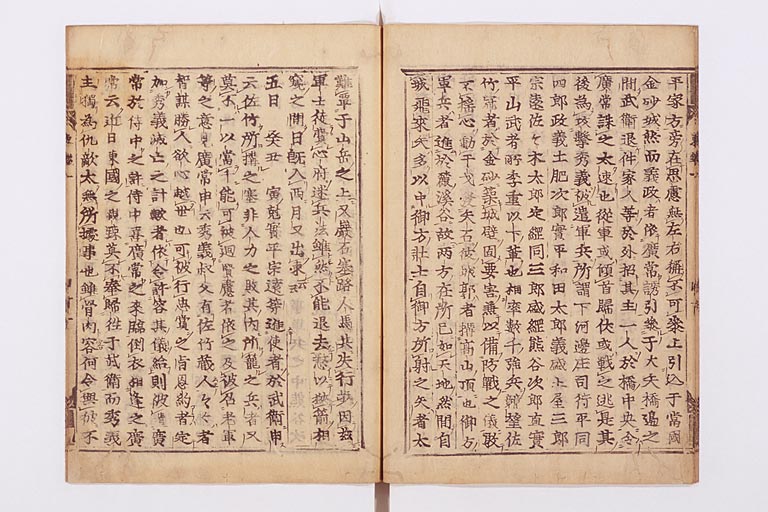 平家方旁在思慮無左右稱不可參上引込于當國
金砂城然而義政者依廣常誘引參于大矢橋邊之
間武衛退件家人等於外招其主一人於橋中央令
廣常誅之太速也從軍或傾首歸伏或戰之逃其
後為攻擊秀義被遣軍兵所謂下何邊庄司行平同
四郎政義土肥次郎實平和田太郎義盛土屋三郎
宗遠佐々木太郎定經同三郎盛經熊谷次郎直實
平山武者所季重以下輩也相率數千強兵競至佐
竹冠者於金砂築城壁固要害兼以備防戰之儀敢
不搖心動干戈發矢石彼城郭者構高山頂也御方
軍兵者進於麓溪谷故兩方在所已如天地然間自
城飛來矢多以中御方壯士自御方所射之矢者太
難覃于山岳之上又嚴石塞路人馬共失行步因茲
軍士徒費心府迷兵法雖然不能退去憖以挾箭相
窺之間日既入西月又出東云云
五日 癸丑 寅尅實平宗遠等進使者於武衛申
云佐竹所構之塞非人力之可敗其內所籠之兵者又
莫不一以當千能可被廻賢慮者依之及被召老軍
等之意見廣常申云秀義叔父有佐竹藏人々々者
智謀勝人欲心越世也可被行忠賞之旨恩約者定
加秀義滅亡之計歟者依令許容其儀給則被遣廣
常於侍中之許侍中喜廣常之來臨倒衣相逢之廣
常云近日東國之親疎莫不奉歸往于武衛而秀義
主獨為仇敵太無所據事也雖骨肉容何令與彼不